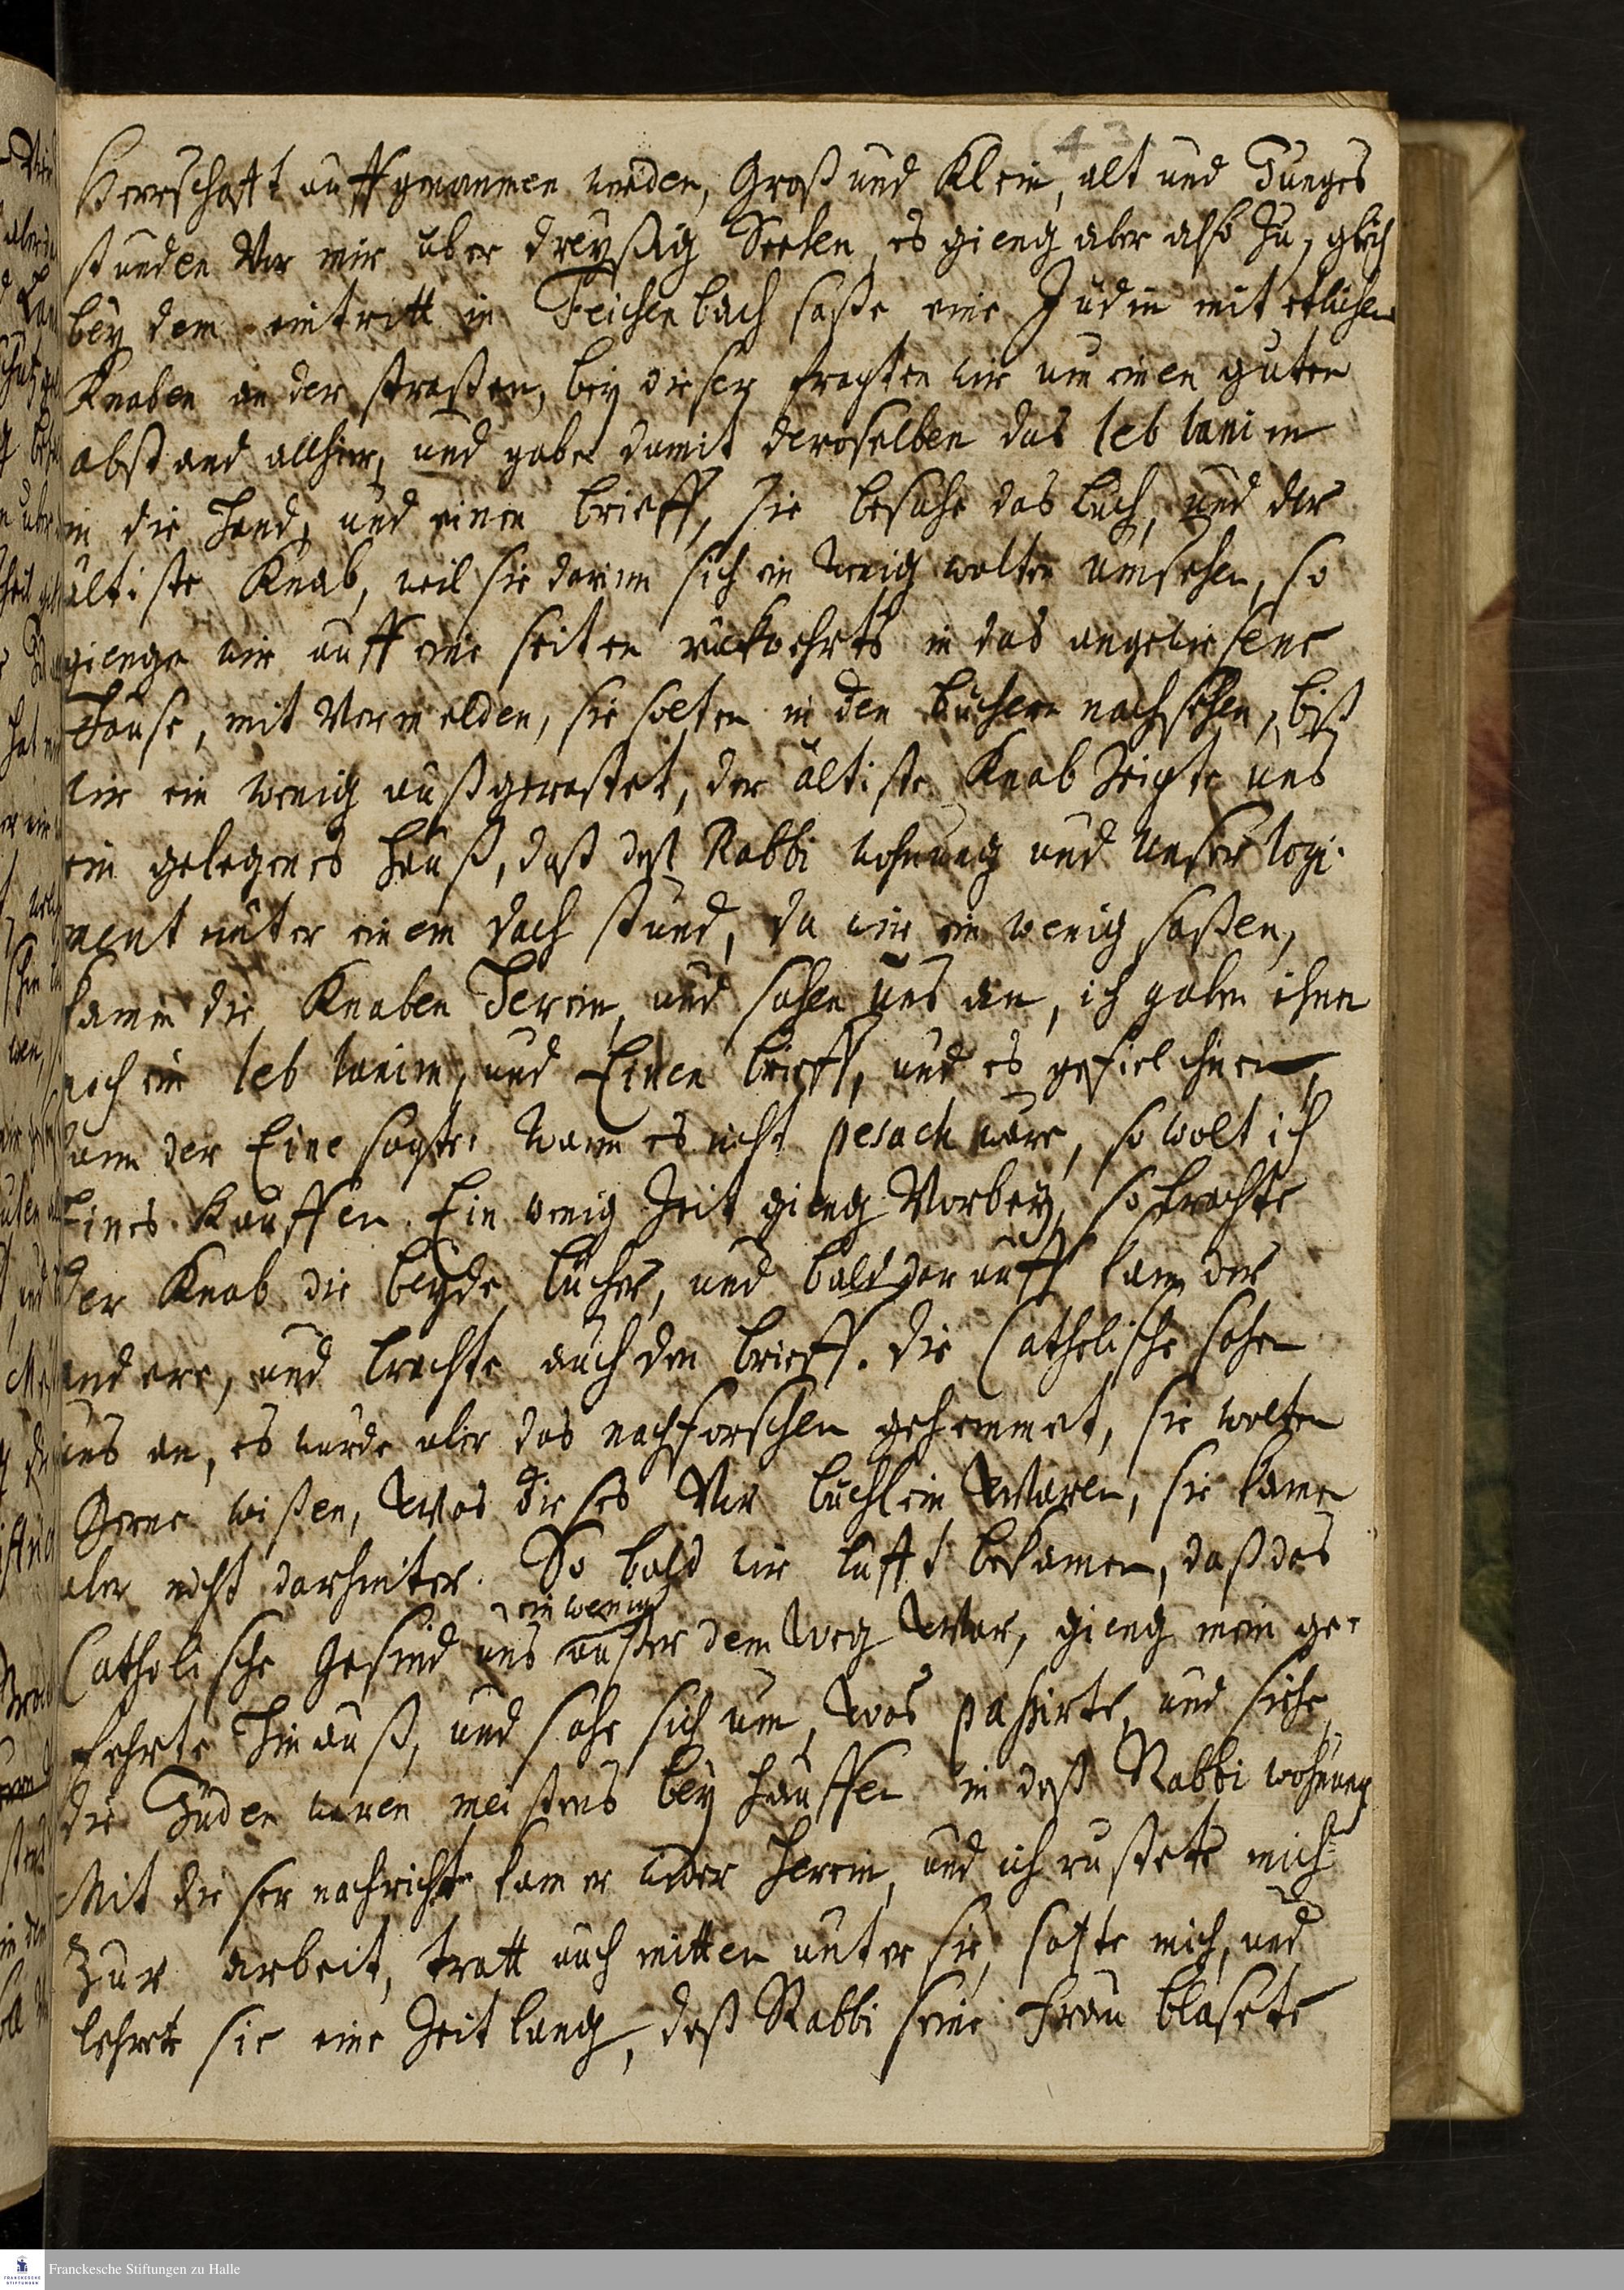 43
Herrschafft auffgenommen werden, Groß und Klein, alt und Junges
stunden Vor mir uber dreyßig Seelen, es gieng aber also zu, gleich
bey dem eintritt in Feichenbach saße eine Jüdin mit etlichen
Knaben an der straßen, bey dieser fragten wir um einen guten
abstand allhier, und gabe damit deroselben das leb tanim
in die Hand, und einen brieff, sie besahe das buch, und der
ältiste Knab, weil sie darinn sich ein wenig wolten umsehen, so
gienge wir auff eine seiten rückwehrts in das angewiesene
Hause, mit Vermelden, sie solten in den büchern nachsehen, biß
wir ein wenig außgerastet, der ältiste Knab zeigte uns
ein gelegenes Hauß, daß deß Rabbi wohnung und unser logi-
ment unter einem dach stund, da wir ein wenig saßen,
kamen die Knaben Herein, und sahen uns an, ich gabe ihnen
noch ein leb tanim, und Einen brieff, und es gefiel ihnen,
dann der Eine sagte: wann es nicht pesach wäre, so wolt ich
Eines Kauffen. Ein wenig Zeit gieng Vorbey, so brachte
der Knab die beyde bücher, und bald darauff kam der
andere, und brachte auch den brieff. Die Catholische sahen
uns an, es wurde aber das nachforschen gehemmet, sie wolten
Gerne wißen, was dieses Vor büchlein waren, sie kamen
aber nicht darhinter. So bald wir lufft bekamen, daß das
ein wenig
Catholische Gesind uns außer dem weg war, gieng mein ge-
fehrte Hinauß, und sahe sich um, was pahsirte, und siehe,
die Jüden waren meistens bey hauffen in deß Rabbi wohnung
Mit dieser nachricht kam er wider Herein, und ich rustete mich
zur arbeit, tratt auch mitten unter sie, satzte mich, und
lehrete sie eine Zeit lang, deß Rabbi seine Frau blasete
Franckesche Stiftungen zu Halle